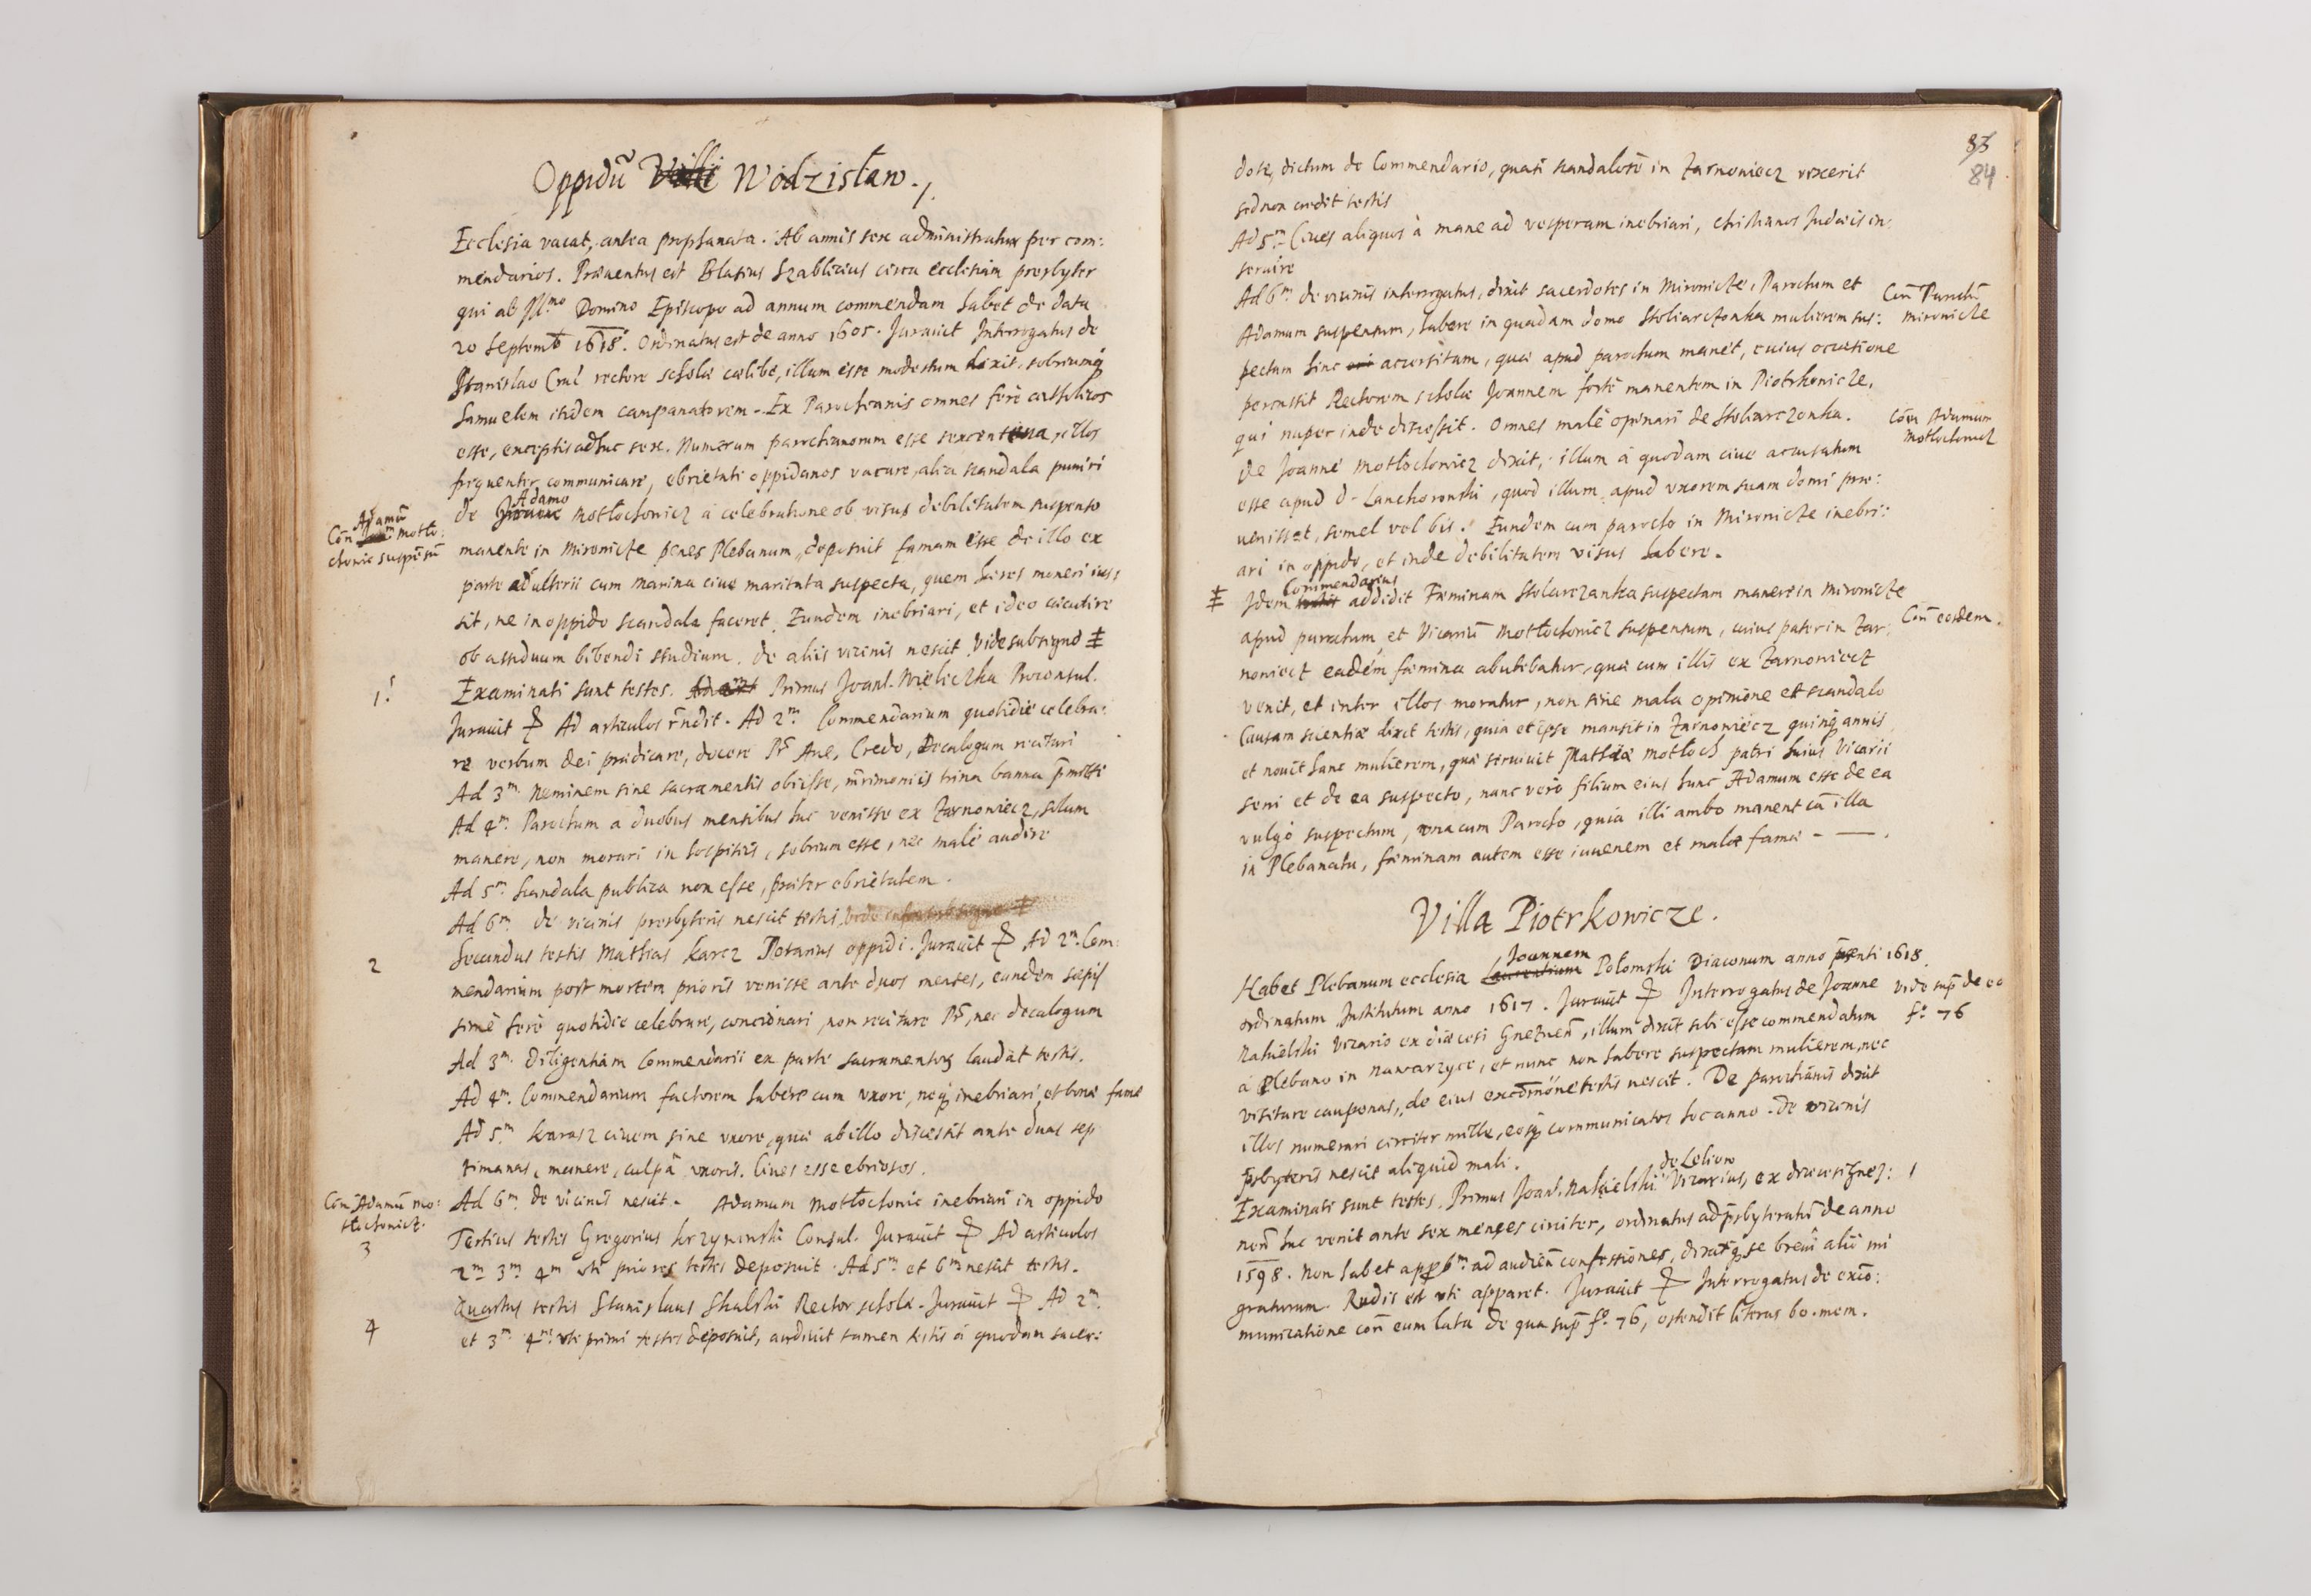 Oppidũ Wodzisław.
Ecclesia vacat, antea prophanata. Ab annis sex administratur per com:
mendarios. Præuentus est Blasius Szablicius circa ecclesiam presbyter
qui ab Ill.mo Domino Episcopo ad annum commendam habet de data
20 Septemb 1618. Ordinatus est de anno 1605. Jurauit Interrogatus de
Stanislao Crul rectore scholæ cælibe, illum esse modestum dixit, sobriumq
Samuelem itidem campanatorem. Ex Parochianis omnes ferè catholicos
esse, exceptis adhuc sex. Numerum parochianorum esse sexcentena, illos
frequenter communicare, ebrietati oppidanos vacare, alia scandala puniri
de Adamo Motłochowicz a celebratione ob visus debilitatem suspenso
Coñ Adamũ Motło:
chowic suspẽsũ
manente in Mironicze penes Plebanum, deposuit famam esse de illo ex
parte adulterii cum Marina ciue maritata suspecta, quem hæres moneri ius:
sit, ne in oppido scandala faceret. Eundem inebriari, et ideo cæcutire
ob assiduum bibendi studium. de aliis vicinis nescit. Vide sub signo ‡
1.
Examinati sunt testes. Primus Joan. Wieliczka Proconsul.
Jurauit Ad articulos rñdit. Ad 2.m Commendarium quotidie celebra:
re verbum dei prædicare, docere Pr Aue, Credo, Decalogum recitari
Ad 3.m Neminem sine sacramentis obiisse, mrimoniis trina banna pmitti
Ad 4.m Parochum a duobus mensibus huc venisse ex Zarnowiecz, solum
manere, non morari in hospitiis, sobrium esse, nec malè audire
Ad 5.m Scandala publica non esse, præter ebrietatem.
Ad 6.m de vicinis presbyteris nescit testis
2
Secundus testis Mathias Karcz Notarius oppidi. Jurauit Ad 2.m Com:
mendarium post mortem prioris venisse ante duos menses, eundem sæpis
simè ferè quotidie celebrare, concionari, non recitare Pr, nec decalogum
Ad 3.m Diligentiam Commendarii ex parte sacramentor laudat testis.
Ad 4.m Commendarium factorem habere cum vxore, neq inebriari, et bonæ famæ
Ad 5.m Karasz ciuem sine vxore, quæ ab illo discessit ante duas sep
timanas, manere, culpâ vxoris. Ciues esse ebriosos.
Coñ Adamũ Mo:
tłochowicz.
Ad 6.m de vicinis nescit. Adamum Motłochowic inebriari in oppido
3
Tertius testis Gregorius Consul. Jurauit Ad articulos
2m 3m 4m vti priores testes deposuit. Ad 5m et 6m nescit testis.
Quartus testis Stanislaus Skalski Rector scholæ. Jurauit Ad 2m.
4
et 3m 4m vti primi testes deposuit, audiuit tamen testis à quodam sacer:
83
84
dote, dictum de Commendario, quasi scandalosè in Zarnowiecz vixerit
sed non credit testis
Ad 5m Ciues aliquos à mane ad vesperam inebriari, christianos Judæis in:
seruire
Ad 6m. de vicinis interrogatus, dixit sacerdotes in Mironicze, Parochum et
Coñ Parochũ
Mironicze
Adamum suspensum, habere in quadam domo Stoliarczonka mulierem sus:
pectam hinc accersitam, quæ apud parochum manet, cuius occasione
percussit Rectorem scholæ Joannem fortè manentem in Piotrkowicze,
qui nuper inde discessit. Omnes malè opinari de Stoliarczonka.
Coñ Adamum
Motłochowicz
De Joanne Motłochowicz dixit, illum à quodam ciue accusatum
esse apud d. Lanckoronski, quod illum apud vxorem suam domi præ:
uenisset, semel vel bis. Eundem cum parocho in Mironicze inebri:
ari in oppido, et inde debilitatem visus habere.
‡ Idem Commendarius addidit Fæminam Stolarczanka suspectam manere in Mironicze
apud parochum, et Vicariũ Motłochowicz suspensum, cuius pater in Zar:
Coñ eosdem.
nowiecz eadem fæmina abutebatur, quæ cum illis ex Zarnowiecz
venit, et inter illos moratur, non sine mala opinione et scandalo
Causam scientiæ dixit testis, quia et ipse mansit in Zarnowiecz quinq annis
et nouit hanc mulierem, quæ seruiuit Mathiæ Motłoch patri huius Vicarii
seni et de ea suspecto, nunc verò filium eius hunc Adamum esse de ea
vulgò suspectum, vna cum Parocho, quia illi ambo manent cũ illa
in Plebanatu, fæminam autem esse iuuenem et malæ famæ
Villa Piotrkowicze.
Habet Plebanum ecclesia Joannem Połomski Diaconum anno psenti 1618
ordinatum Institutum anno 1617. Jurauit Interrogatus de Joanne
vide sup de eo
f. 76
Nakielski Vicario ex diæcesi Gneznẽn, illum dixit sibi esse commendatum
à Plebano in Nawarzyce, et nunc non habere suspectam mulierem, nec
visitare cauponas, de eius excõmõne testis nescit. De parochianis dixit
illos numerari circiter mille, eosq communicatos hoc anno. de vicinis
psbyteris nescit aliquid mali.
Examinati sunt testes. Primus Joan. Nakielski de Leliow Vicarius, ex diæcesi Gnez: 1
nen huc venit ante sex menses circiter, ordinatus ad psbyteratũ de anno
1598. Non habet app.m ad audien confessiones, dixitq se breui aliò mi
graturum. Rudis est vti apparet. Jurauit Interrogatus de excõ:
municatione coñ eum lata de qua sup f. 76, ostendit literas bo. mem.